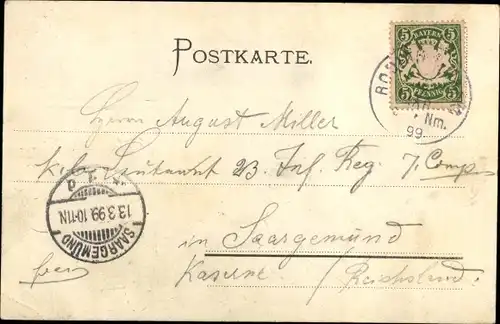 POSTKARTE.
5 BAYERN 5
5 PFENNIG 5
Nm.
99
Herrn August Miller
Leutnant 23 Inf Reg. 7. Comp
in Saargemünd
Kaserne / Reichsland.
SAARGEMÜND
13.3.99.10-11N.